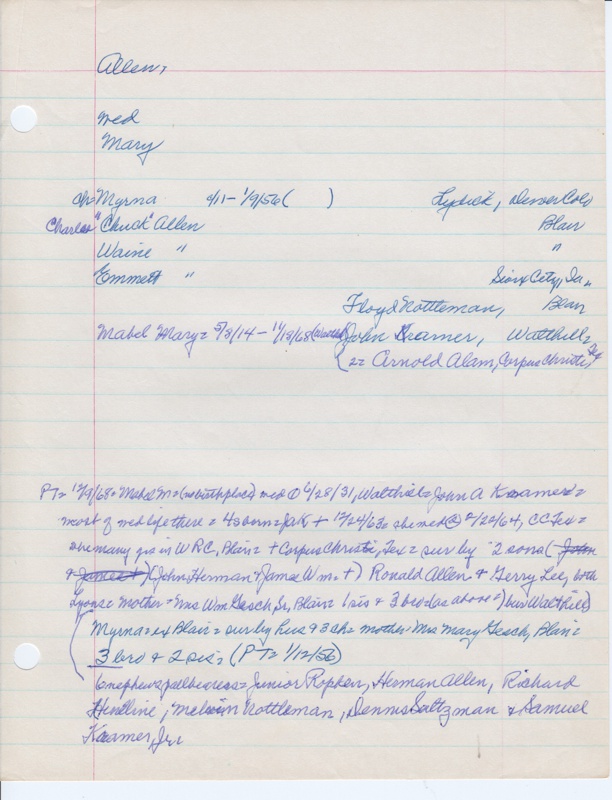 Allen,
wed
Mary
ch= Myrna 9/11-1/9/56 ( ) Lydick, Denver Colo
Charles "Chuck" Allen Blair
Waine " "
Emmett " Sioux City, Ia.,
Floyd Nottleman, Blair
Mabel Mary= 5/3/14 - John Kramer, Walthill=
(2= Arnold Alam, Corpus Christi, Tex
PT= 12/9/68= Mabel M= (no birthplace) wed 6/28/31, Walthill= John A Kramer=
most of wed life there = 4 sons= + 12/24/63= she wed @ 2/22/64, CC Tex=
she many yrs in WRC, Blair= + Corpus Christi, Tex= sur by 2 sons (John
+ James +) (John Herman + James Wm. +) Ronald Allen + Gerry Lee, both
Lyons= mother= Mrs Wm Gesch, Sr, Blair= 1 sis + 3 bro (as above=) bur Walthill)
(Myrna= ex Blair= sur by hus + 3 ch= mother= Mrs Mary Gesch, Blair=
3 bro + 2 sis= (PT= 1/12/56)
6 nephews pallbearers= Junior Herman Allen, Richard
Hineline, Melvin Nottleman, Dennis Saltzman + Samuel
Kramer, Jr.,